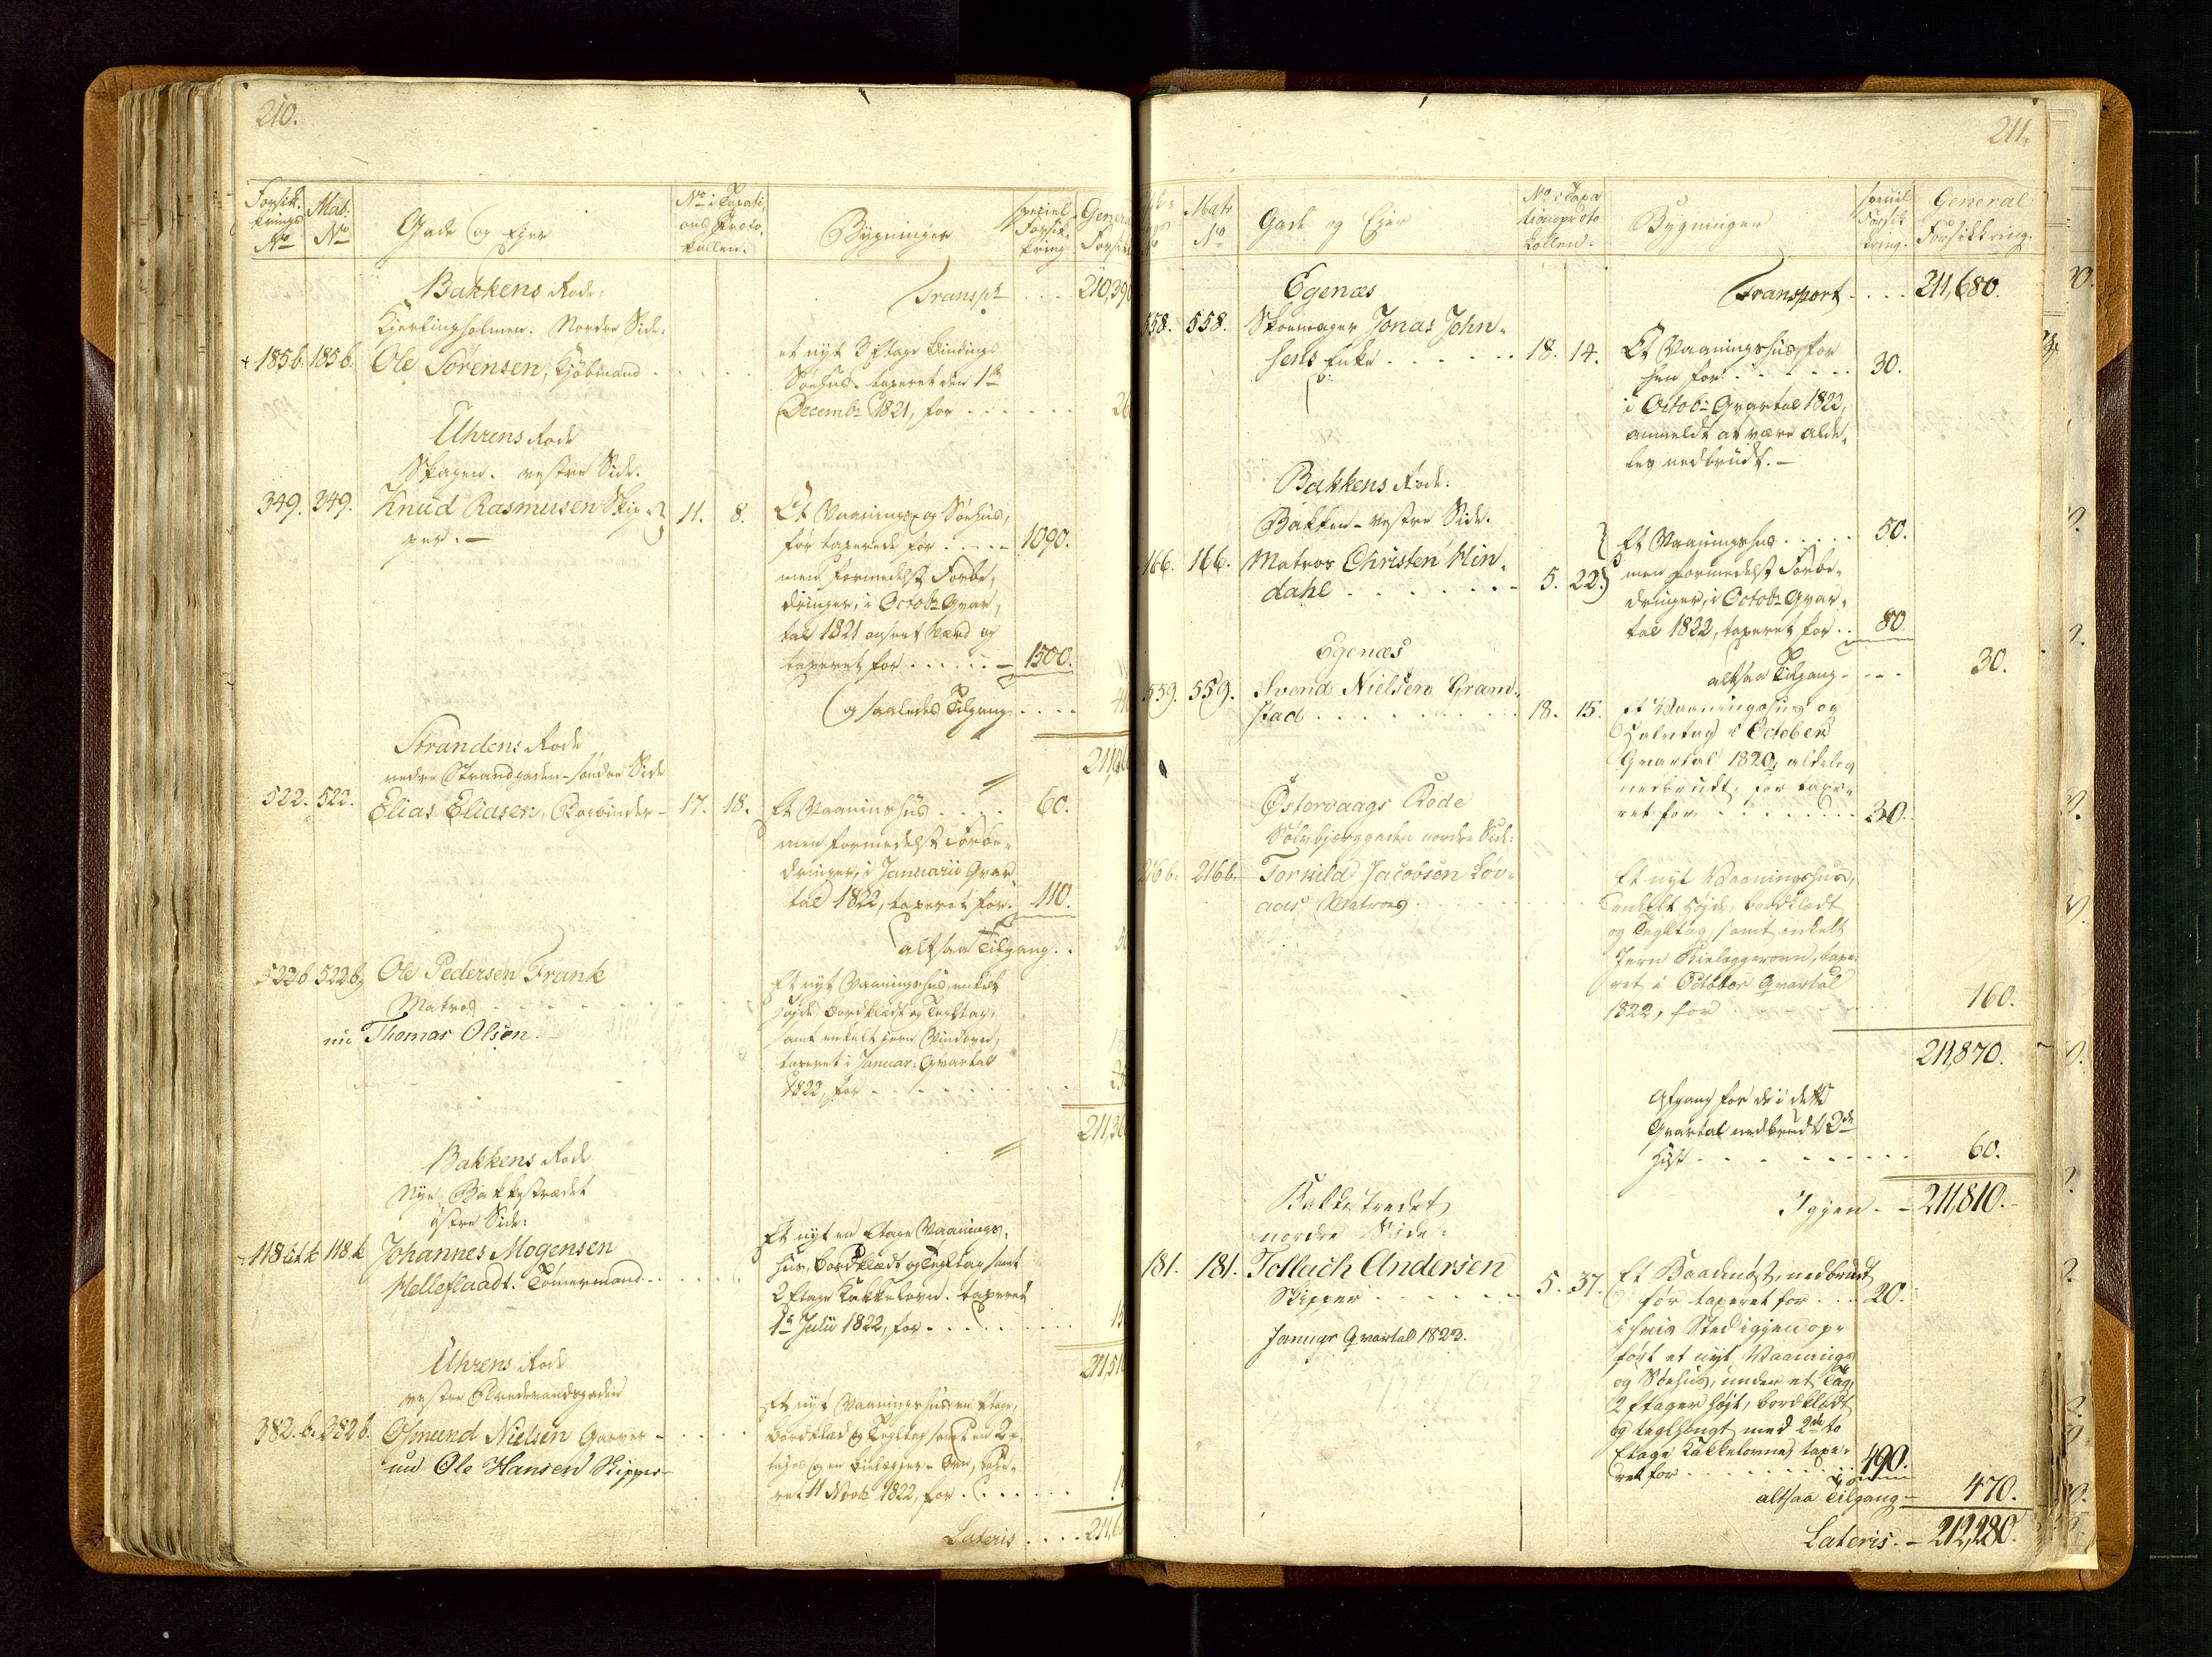 210.
Forsik-
krings
No
Mat:
No
Gade og Ejer
No i Taxati-
ons Proto-
kollen.
Bygninger
Speciel
Forsik-
kring
Genera
Forsik
Bakkens Rode,
Transpt . . . 210,390
Kjerlingholmen. Nordre Side.
+ 185b. 185b. Ole Sörensen, Kjöbmand . . . . et nyt 3 Etage Bindings
Söehuus taxeret den 1te
Decembr 1821, for . . . . . . 26
Uhrens Rode
Skagen. vestre Side.
349. 349. Knud Rasmusen Skip- 11. 8. Et Vaanings og Söehus,
per. – før taxerede for . . . . 1090.
men formedelst Forbe-
dringer, i Octobr Qvar-
tal 1821 anseet værd og
taxeret for . . . . . . 1500.
og saaledes Tilgang . . . . 41
Strandens Rode
211,06
nedre Strandgaden – søndre Side
522. 522. Elias Eliasen, Bogbinder – 17. 18. Et Vaaningshus . . . . 60.
men formedelst Forbe-
dringer, i Januarii Qvar
tal 1822, taxeret for . 110.
altsaa Tilgang . . 50
522b 522b. Ole Pedersen Frank
Matros . . . . . .
nu Thomas Olsen. –
Et nyt Vaaningshus, enkelt
høide, bordklædt og Tegltag,
samt enkelt jern Vindovn,
taxeret i Januar. Qvartal
1822, for . . . . . . . . .
211,36
Bakkens Rode
Nye Bakkestrædet
østre Side:
118 Lit k 118.k Johannes Mogensen
Helleflaadt. Tömermand . . . . .
Et nyt en Etage Vaanings-
hus, bordklædt og Tegltag samt
2 Etage Kakkelovn. taxeret
1te Julii 1822, for . . . . . . . 15
Uhrens Rode
211,51
vestre Bredevandsgaden
382.b. 382b. Osmund Nielsen Garver –
nu Ole Hansen Skipper –
Et nyt Vaaningshus en Etage,
bordklæd og Tegltag samt en 2 E-
tages og en Bielægger – Ovn, taxe-
ret 11 Novbr 1822, for . . . . . . 17
Lateris . . . . 211,6
211.
Mat:
No
Gade og Ejer
No i Taxa
tionsproto
kollen.
Bygninger
Speciel
Forsik
kring.
General
Forsikkring.
Egenæs
Transport . . . . 211,680.
558. 558. Skoemager Jonas John-
sens Enke . . . . . . 18. 14. Et Vaaningshus, for
hen for . . . . . . . 30.
i Octobr Qvartal 1822,
anmeldt at være alde-
les nedbrudt. –
Bakkens Rode:
Bakken – vestre Side.
166. 166. Matros Christen Hin-
dahl . . . . . . . – 5. 22.
Et Vaaningshus . . . . . 50.
men formedelst Forbe-
dringer, i Octobr Qvar-
tal 1822, taxeret for . . 80
altsaa Tilgang . . . . 30.
Egenæs
559. 559. Svend Nielsen Gram-
stad . . . . . . . . . 18. 15. Et Vaaningshus og
Halvtag i October
Qvartal 1820, aldeles
nedbrudt, før taxe-
ret for . . . . . . . . . 30.
Östervaags Rode
Sölvbjerggaden nordre Side:
216b. 216b. Torkild Jacobsen Löv-
aas Matros . . . . . . . .
Et nyt Vaaningshus,
enkelt høide, bordklædt
og Tegltag, samt enkelt
Jern Bielæggerovn, taxe-
ret i October Qvartal
1822, for . . . . . 160.
211,870.
Afgang for de i dette
Qvartal nedbrudt 2de
Huse . . . . . . . . . 60.
Igjen . – 211,810. –
Bakkestrædet
nordre Side:
181. 181. Tollach Andersen
Skipper . . . . . . – 5. 37. Et Baadnöst, nedbrudt
før taxeret for . . . 20.
Januar Qvartal 1823.
i hvis Sted igjen op-
ført et nyt Vaanings
og Söehus, under et Tag,
2 Etager høit, bordklædt
og teglhengt med 2de to
Etage Kakkelovne, taxe-
ret for . . . . . . . . . . 490.
altsaa Tilgang – 470.
Lateris. – 212,280.